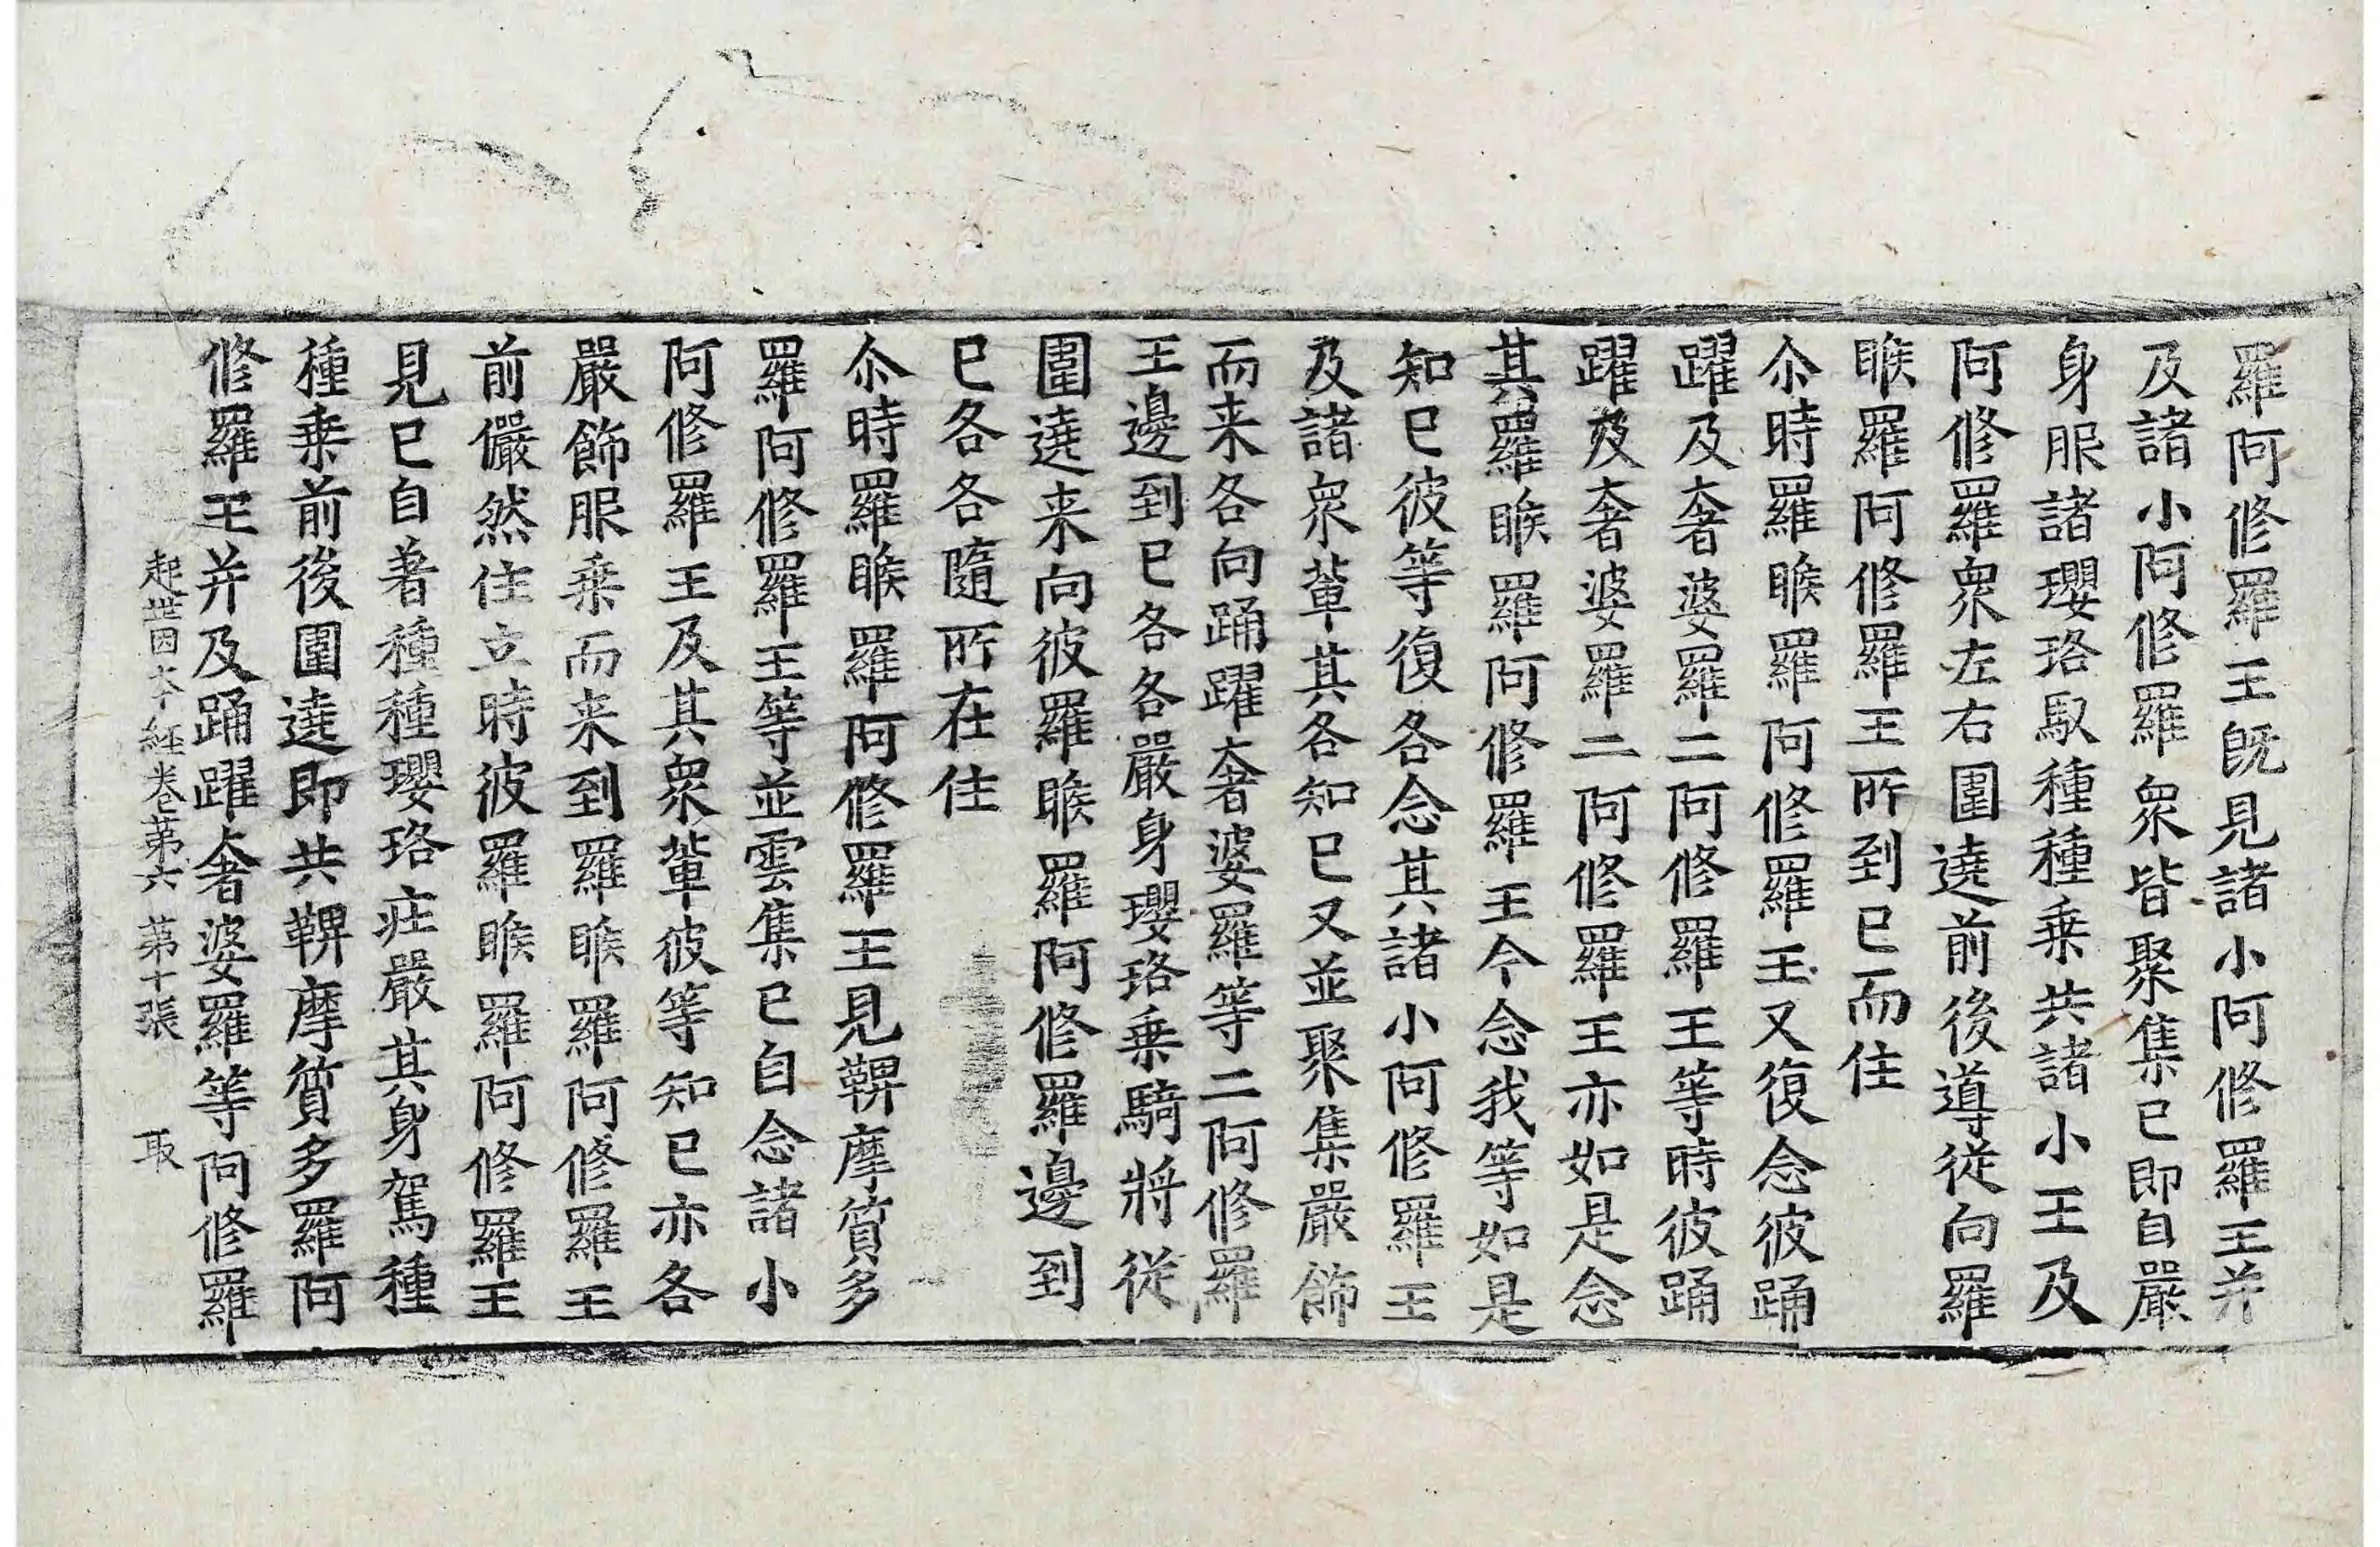 羅阿修羅王旣見諸小阿修羅王并
及諸小阿修羅衆皆聚集已即自嚴
身服諸瓔珞馭種種乗共諸小王及
阿修羅衆左右圍遶前後導從向羅
睺羅阿修羅王所到已而住
尒時羅睺羅阿修羅王又復念彼踊
躍及奢婆羅二阿修羅王等時彼踊
躍及奢婆羅二阿修羅王亦如是念
其羅睺羅阿修羅王今念我等如是
知已彼等復各念其諸小阿修羅王
及諸衆輩其各知已又並聚集嚴飾
而来各向踊躍奢婆羅等二阿修羅
王邊到已各各嚴身瓔珞乗騎將從
圍遶来向彼羅睺羅阿修羅邊到
已各各隨所在住
尒時羅睺羅阿修羅王見鞞摩質多
羅阿修羅王等並雲集已自念諸小
阿修羅王及其衆輩彼等知已亦各
嚴飾服乗而来到羅睺羅阿修羅王
前儼然住立時彼羅睺羅阿修羅王
見已自著種種瓔珞疘嚴其身駕種
種乗前後圍遶即共鞞摩質多羅阿
修羅王并及踊躍奢婆羅等阿修羅
起世因夲經卷第六 第十張 取